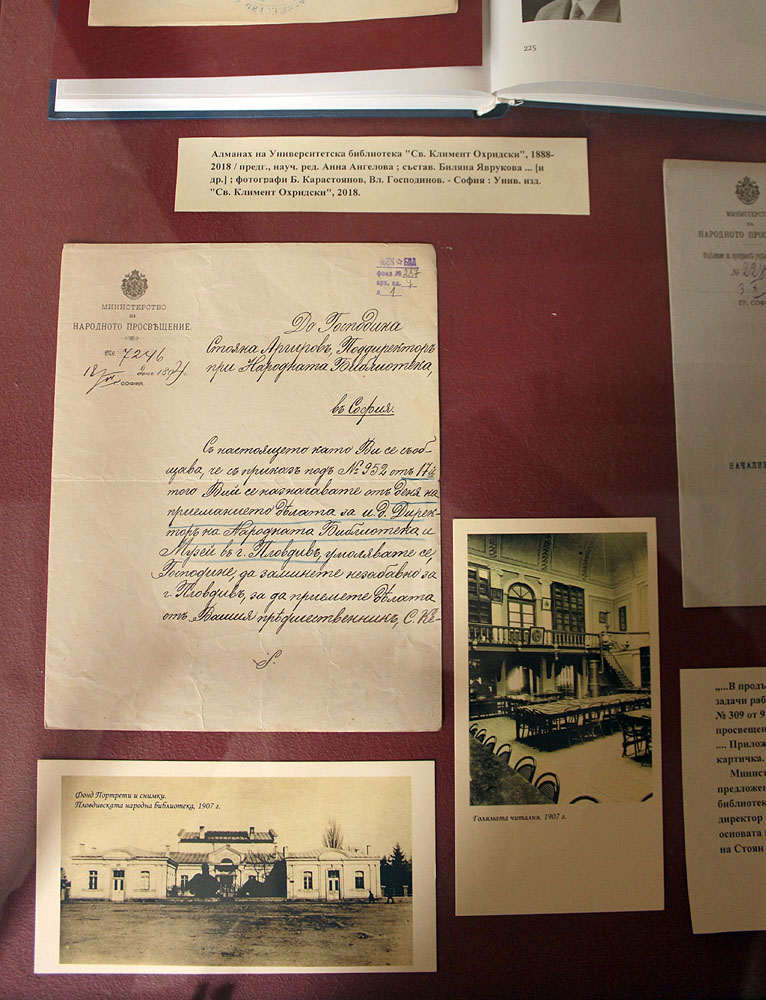 225
Алманах на Университетска библиотека "Св. Климент Охридски", 1888-
2018 / предг., науч. ред. Анна Ангелова ; състав. Биляна Яврукова ... [и
др.] ; фотографи Б. Карастоянов, Вл. Господинов. - София : Унив. изд.
"Св. Климент Охридски", 2018.
МИНИСТЕРСТВО
НА
НАРОДНОТО ПРОСВѢЩЕНИЕ.
№ 7246
СОФИЯ.
фонд № 227
арх. ед. 7
л. 1
До Господина
Стояна Аргировъ, Поддиректоръ
при Народната Библиотека,
въ София.
Съ настоящето като Ви се съоб-
щава, че съ приказъ подъ № 952 отъ 17й
того Вий се назначавате отъ деня на
приеманието дѣлата за и. д. Дирек-
торъ на Народната Библиотека и
Музей въ г. Пловдивъ, умолявате се,
Господине, да заминете незабавно за
г. Пловдивъ, за да приемете дѣлата
отъ Вашия прѣдшественникъ, С. Ко-
МИНИСТЕРСТВО
НА
НАРОДНОТО ПРОСВ
№ 228
ГР. СОФ
Фонд Портрети и снимки.
Пловдивската народна библиотека, 1907 г.
Голямата читалня. 1907 г.
„...В продъ
задачи раб
№ 309 от 9
просвещен
.... Прилож
картичка.
Минист
предложен
библиотек
директор
основата
на Стоян